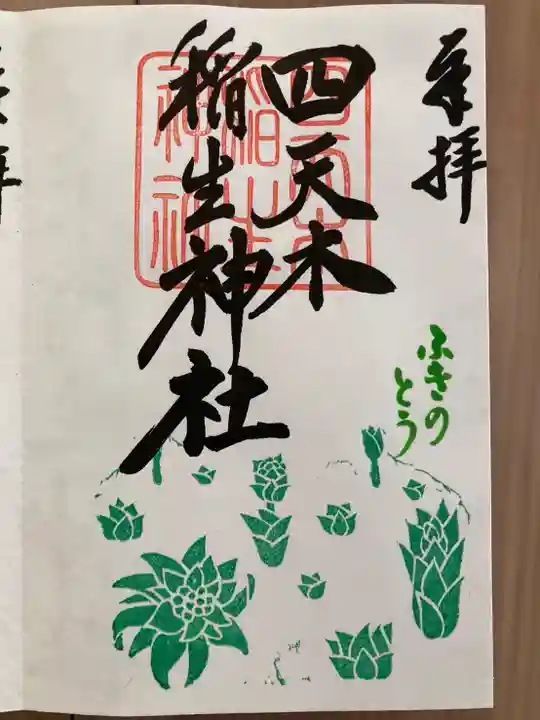 奉拝
四天木
稲生神社
ふきの
とう